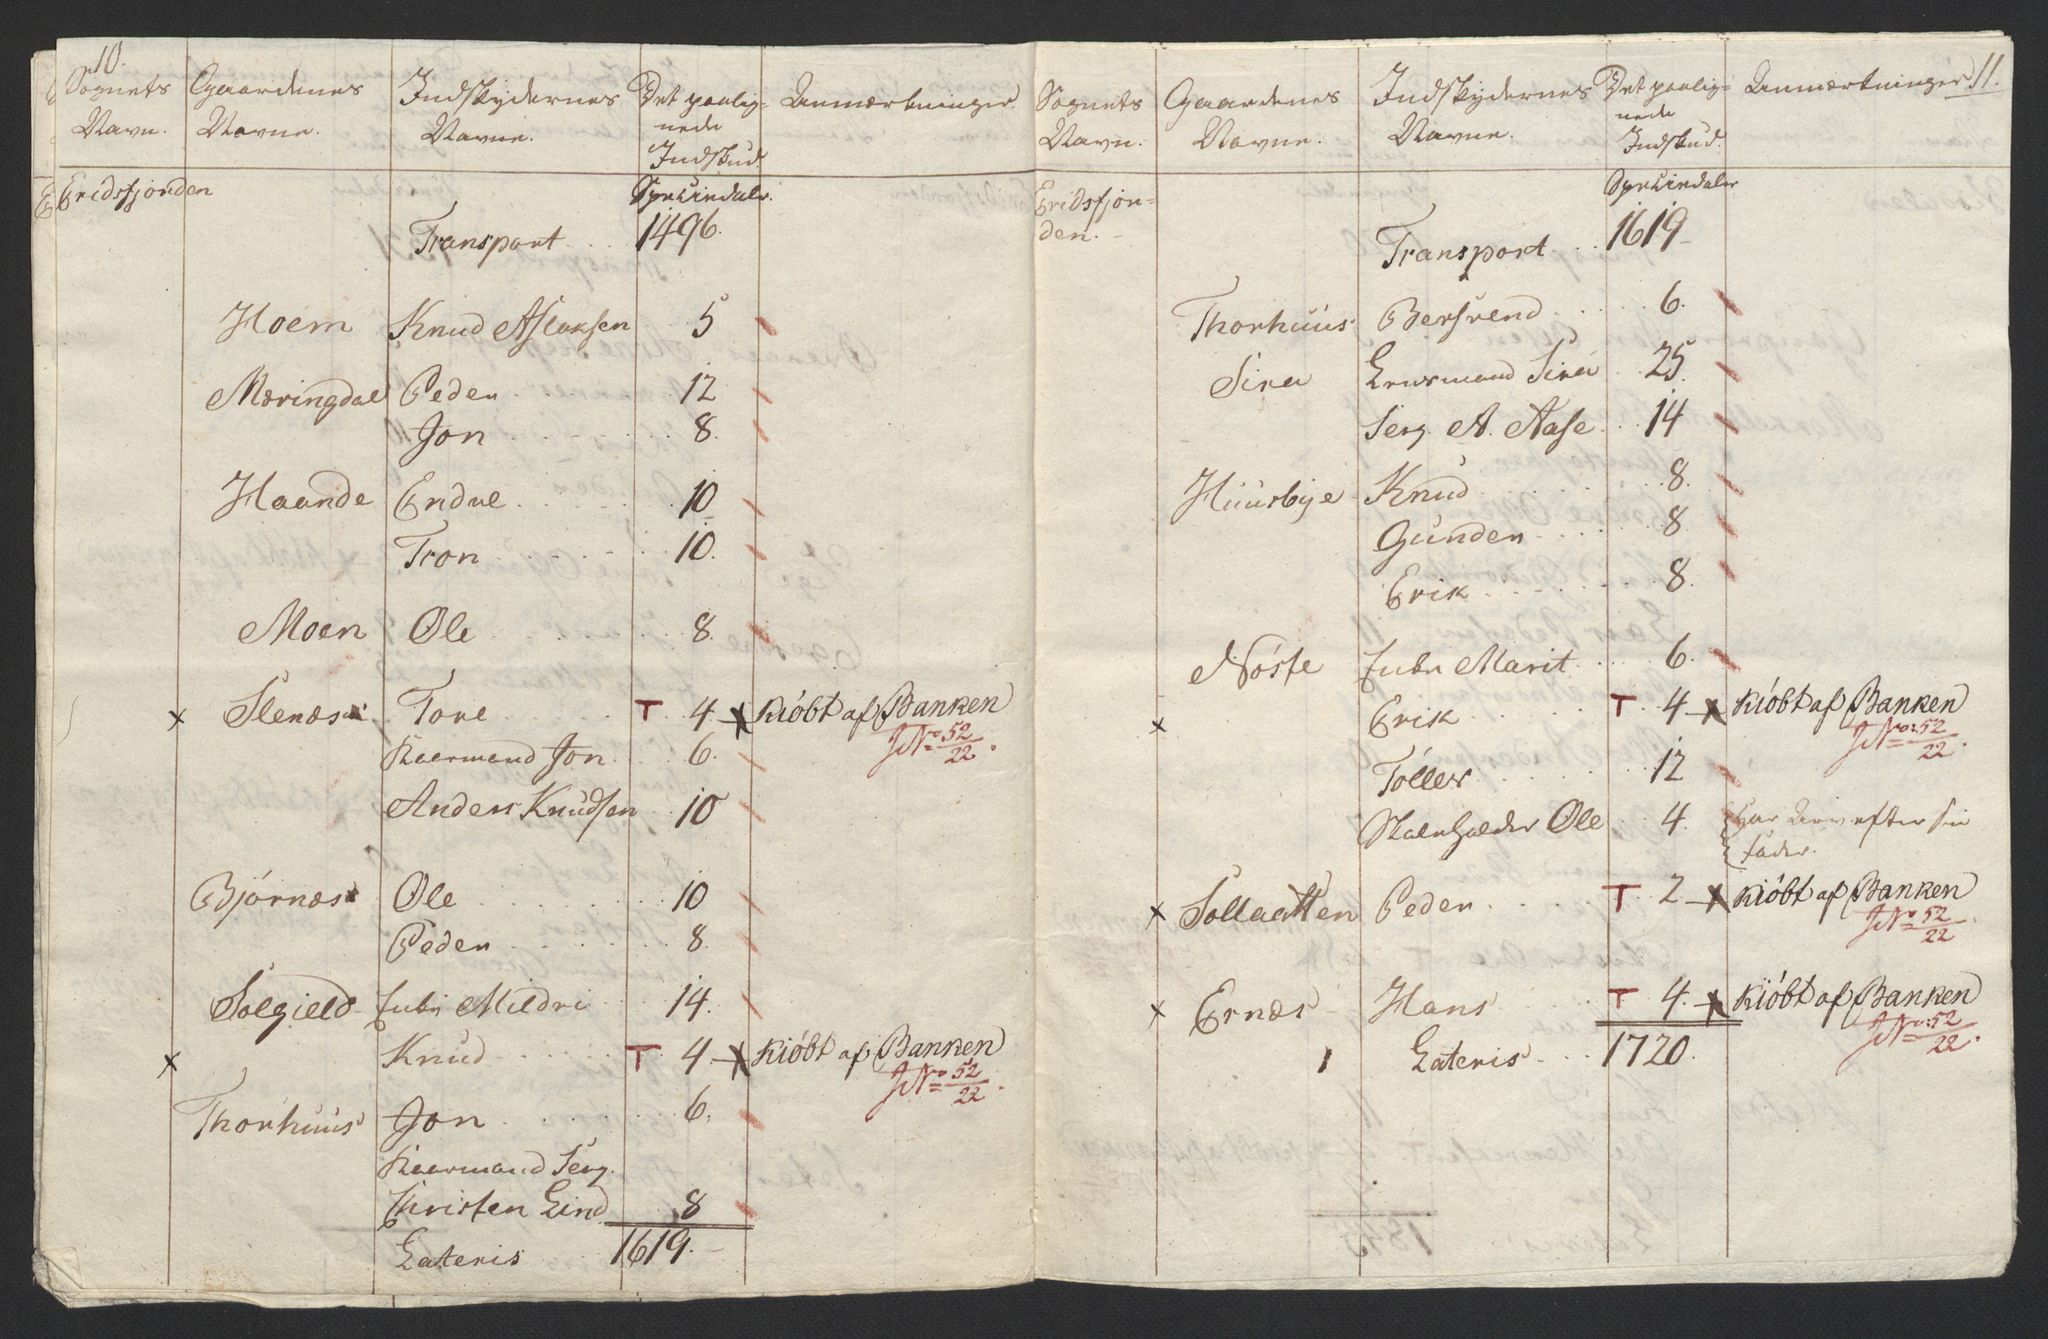 10.
Sognets Navn. Gaardenes Navne. Indskydernes Navne. Det paalignede Indskud Anmærkninger.
Eridsfjorden Speciedaler.
Transport 1496.
Hoem Knud Aslaksen 5
Mæringdal Peder 12
Jon 8.
Haande Endre 10
Tron 10.
Moen Ole 8.
x Slenæs Tore T 4 x Kiöbt af Banken
JNo 52/22.
Kaarmand Jon 6.
Anders Knudsen 10
Bjørnæs Ole 10
Peder 8.
Solgield Enke Mildri 14.
x Knud T 4 x Kiöbt af Banken
JNo 52/22.
Thorhuus Jon 6.
Kaarmand Serg.
Christen Lind 8
Lateris 1619.
11.
Sognets Navn. Gaardenes Navne. Indskydernes Navne. Det paalignede Indskud. Anmærkninger
Eridsfjorden. Speciedaler
Transport 1619
Thorhuus Bersvend 6.
Sira Lensmand Sira 25.
Serg. A. Aase 14
Huusbye Knud 8.
Gunder 8.
Erik 8.
Nöste Enke Marit 6.
x Erik T 4 x Kiöbt af Banken
JNo: 52/22.
Töller 12
Ole 4. har Arv efter sin
fader.
x Sollaatten Peder T 2 x Kiöbt af Banken
JNo 52/22.
x Ernæs Hans T 4. x Kiöbt af Banken
JNo: 52/22.
Lateris 1720.